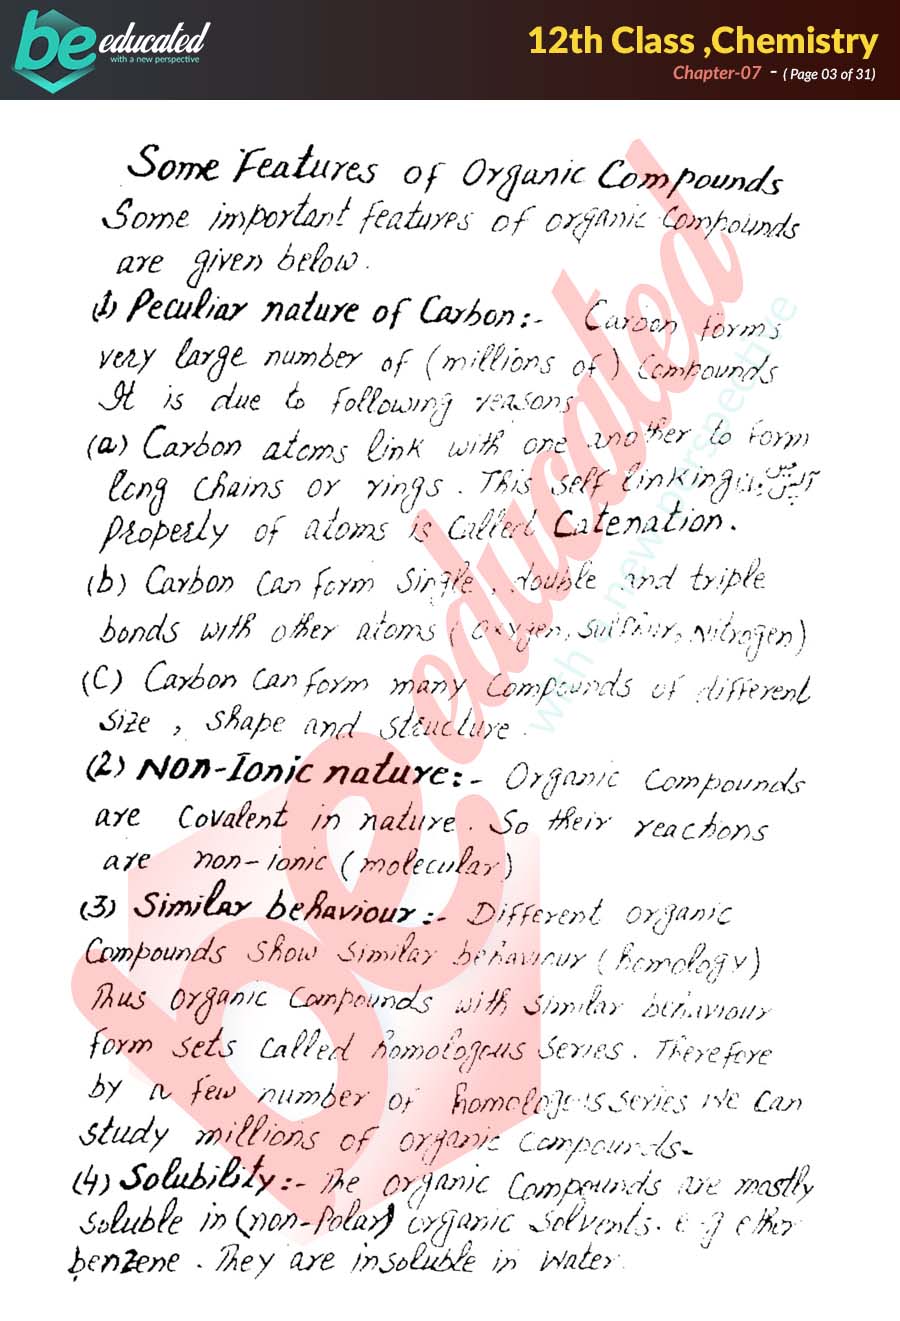 be educated
with a new perspective
12th Class ,Chemistry
Chapter-07 - ( Page 03 of 31)
Some Features of Organic Compounds
Some important features of organic compounds
are given below.
(1) Peculiar nature of Carbon:- Carbon forms
very large number of (millions of) compounds
It is due to following reasons
(a) Carbon atoms link with one another to form
long chains or rings. This self linking
Property of atoms is called Catenation.
(b) Carbon can form single, double and triple
bonds with other atoms (oxygen, sulfhur, Nitrogen)
(C) Carbon can form many compounds of different
size, shape and structure.
(2) Non-Ionic nature:- Organic compounds
are covalent in nature. So their reactions
are non-ionic (molecular)
(3) Similar behaviour:- Different organic
Compounds show similar behaviour (homology)
Thus organic compounds with similar behaviour
form sets called homologous series. Therefore
by a few number of homologous series we can
study millions of organic compounds.
(4) Solubility:- The organic compounds are mostly
soluble in (non-Polar) organic solvents. e.g ether
benzene. They are insoluble in water.
be educated
with a new perspective